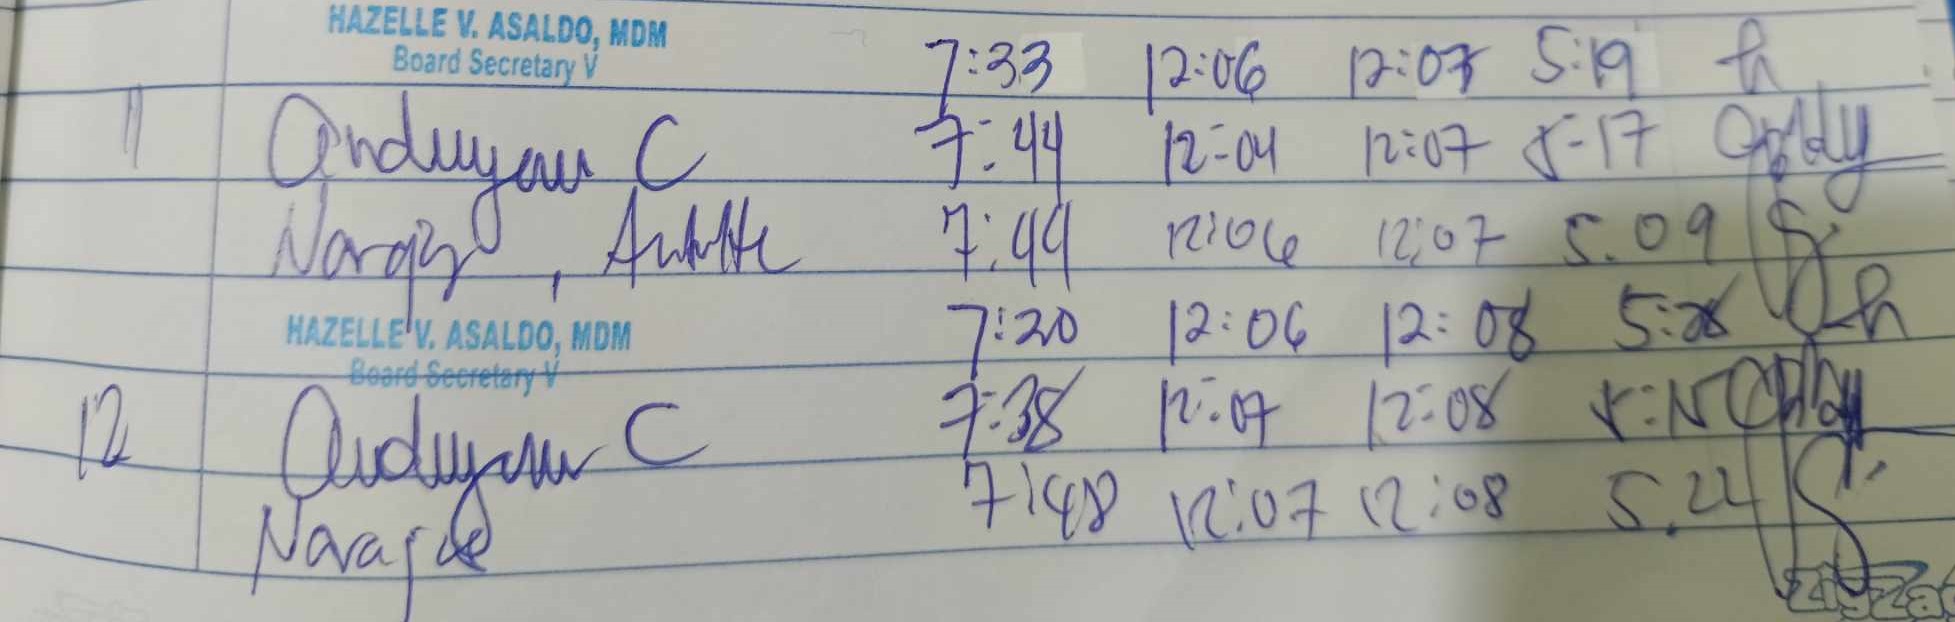 HAZELLE V. ASALDO, MDM
Board Secretary V 7:33 12:06 12:07 5:19
11 Anduyan C 7:44 12:04 12:07 5:17
7:44 12:06 12:07 5.09
HAZELLE V. ASALDO, MDM 7:20 12:06 12:08
Board Secretary V
12 Anduyan C 7:38 12:07 12:08 5:15
7:48 12:07 12:08 5.22
ZigZag